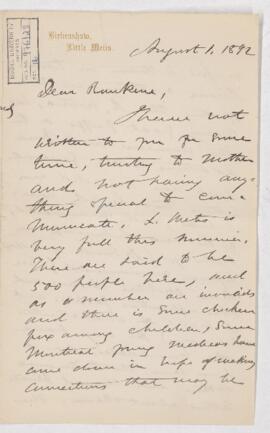 Birkenshaw,
Little Metis.
August 1. 1892
Dear Rankine,
I have not
written to you for some
time, trusting to Mother
and not having any
thing special to com-
municate. L. Metis is
very full this summer.
There are said to be
500 people here, and
as a number are invalids
and there is some chicken
pox among children, some
Montreal young medicos have
come down in hope of making
connections that may be